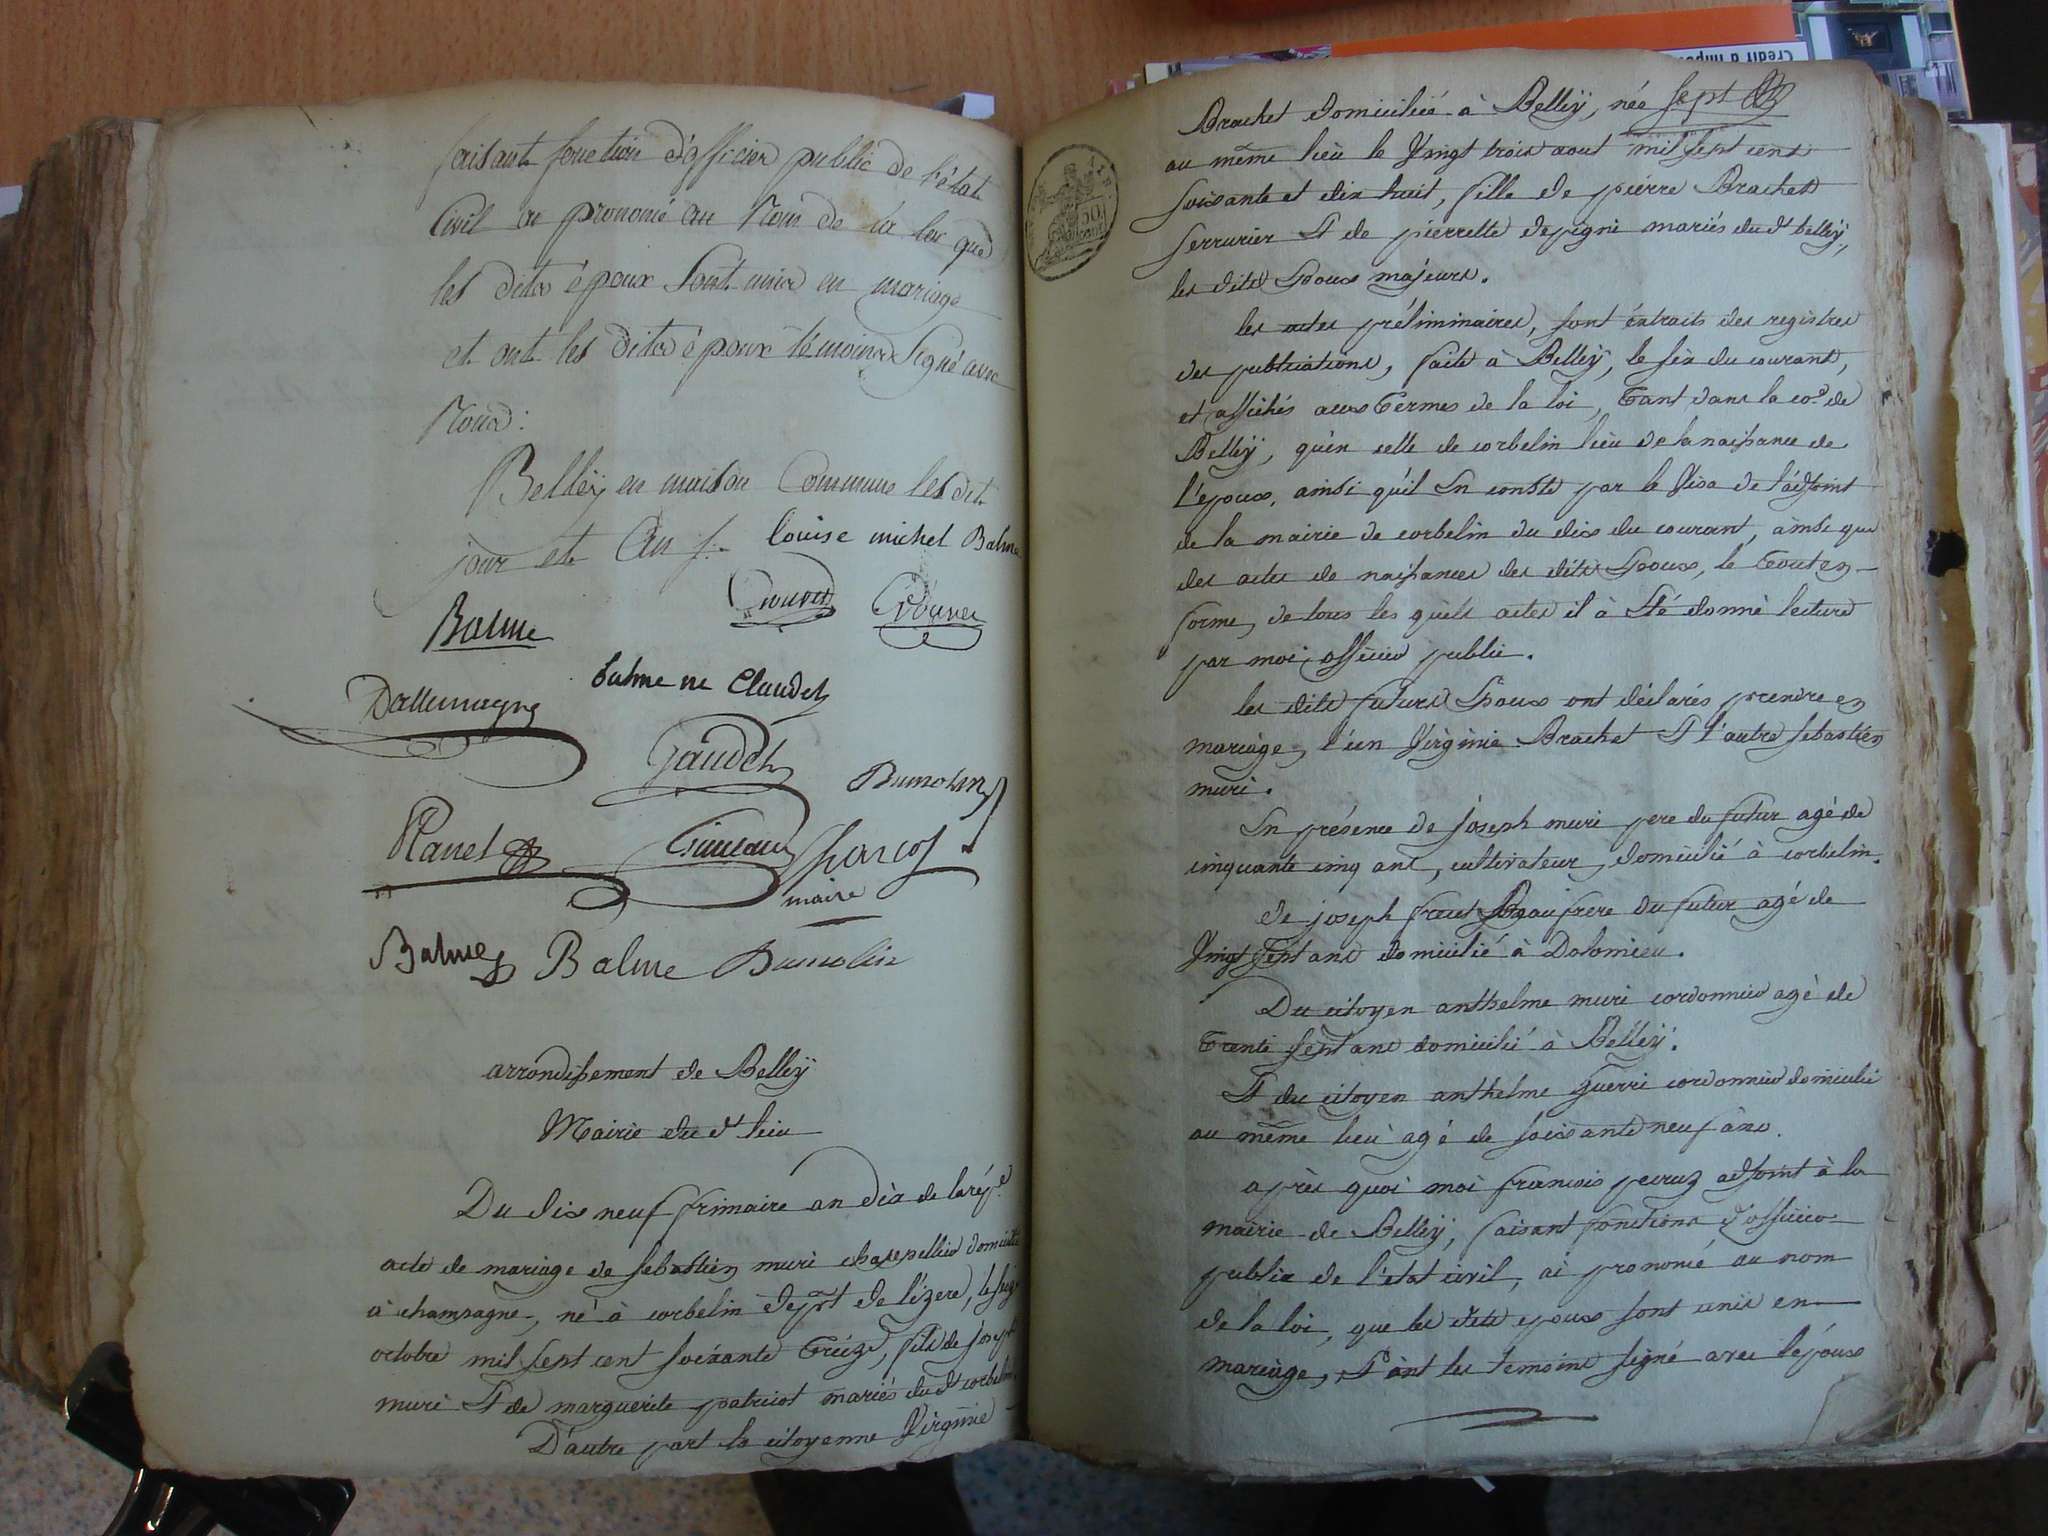 faisant fonction d'officier public de l'état
Civil ai prononcé au Nom de la loi que
les dits époux sont unis en mariage
et ont les dits époux témoins signé avec
Nous :
Belleÿ en maison Commune les dit
jour et An /. louise michel Balme
Balme
Dallemagne
balme ne Claudet
Gaudet
Dumolin
Planet
maire
Balme Balme Dumolin
arrondissement de Belleÿ
Mairie du dt lieu
Du dix neuf frimaire an dix de la rép.e
acte de mariage de sebastien muri domicilié
à champagne, né à corbelin dept de l'izere, le
octobre mil sept cent soixante treize, fils de joseph
muri Et de marguerite patricot mariés du dt corbelin
D'autre part la citoyenne Virginie
Brachet domiciliée à Belleÿ, née sept
au même lieu le Vingt trois aout mil sept cent
soixante et dix huit, fille de pierre Brachet
serrurier Et de pierrette depigni mariés du dt belleÿ,
les dits Epoux majeurs.
les actes préliminaires, sont extraits des registres
des publications, faite à Belleÿ, le six du courant,
et affichés aux termes de la loi, tant dans la co.e de
Belleÿ, qu'en celle de corbelin lieu de la naissance de
l'epoux, ainsi qu'il En conste par le Visa de l'adjoint
de la mairie de corbelin du dix du courant, ainsi que
des actes de naissances des dits Epoux, le tout en
forme, de tous les quels actes il à Eté donné lecture
par moi officier public.
les dits futurs Epoux ont déclarés prendre en
mariage, l'un Virginie Brachet Et l'autre sebastien
muri.
En présence de joseph muri pere du futur agé de
cinquante cinq ans, cultivateur domicilié à corbelin.
de joseph Beaufrere du futur agé de
Vingt sept ans domicilié à Dolomieu.
Du citoyen anthelme muri cordonnier agé de
trente sept ans domicilié à Belleÿ.
Et du citoyen anthelme guerri cordonnier domicilié
au même lieu agé de soixante neuf ans.
après quoi moi francois peruz adjoint à la
mairie de Belleÿ, faisant fonctions d'officier
public de l'état civil, ai prononcé au nom
de la loi, que les dits epoux sont unis en
mariage, Et ont les temoins signé avec l'époux